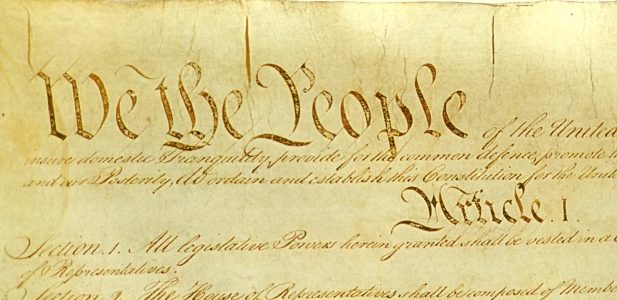 We the People of the United
insure domestic Tranquility, provide for the common defence, promote
and our Posterity, do ordain and establish this Constitution for the Unite
Article. I.
Section. 1. All legislative Powers herein granted shall be vested in a
of Representatives.
Section. 2. The House of Representatives shall be composed of Membe